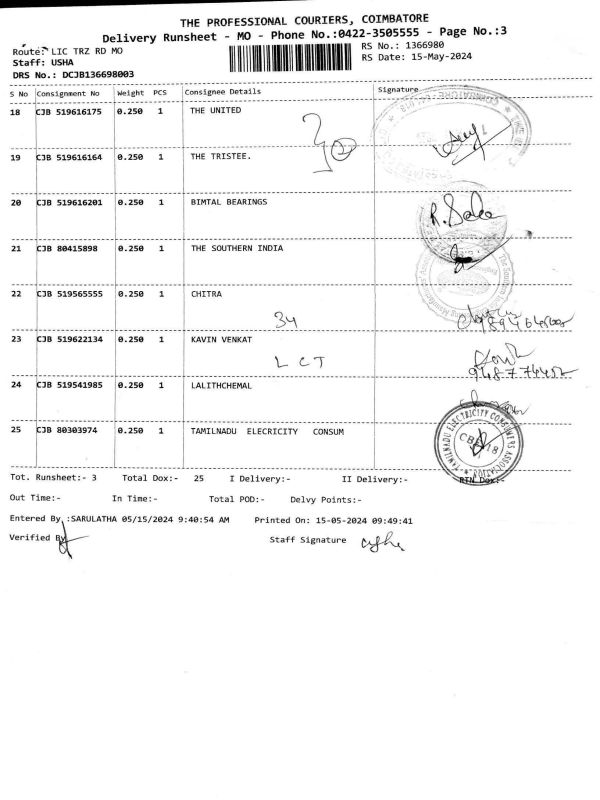 THE PROFESSIONAL COURIERS, COIMBATORE
Delivery Runsheet - MO - Phone No.:0422-3505555 - Page No.:3
Route: LIC TRZ RD MO
RS No.: 1366980
Staff: USHA
RS Date: 15-May-2024
DRS No.: DCJB136698003
S No Consignment No Weight PCS Consignee Details Signature
18 CJB 519616175 0.250 1 THE UNITED
19 CJB 519616164 0.250 1 THE TRISTEE.
20 CJB 519616201 0.250 1 BIMTAL BEARINGS
21 CJB 80415898 0.250 1 THE SOUTHERN INDIA
22 CJB 519565555 0.250 1 CHITRA
34
23 CJB 519622134 0.250 1 KAVIN VENKAT
L C T
24 CJB 519541985 0.250 1 LALITHCHEMAL
25 CJB 80303974 0.250 1 TAMILNADU ELECRICITY CONSUM
TAMILNADU ELECTRICITY CONSUMERS ASSOCIATION
Tot. Runsheet:- 3 Total Dox:- 25 I Delivery:- II Delivery:- RTN Dox:-
Out Time:- In Time:- Total POD:- Delvy Points:-
Entered By :SARULATHA 05/15/2024 9:40:54 AM Printed On: 15-05-2024 09:49:41
Verified By Staff Signature